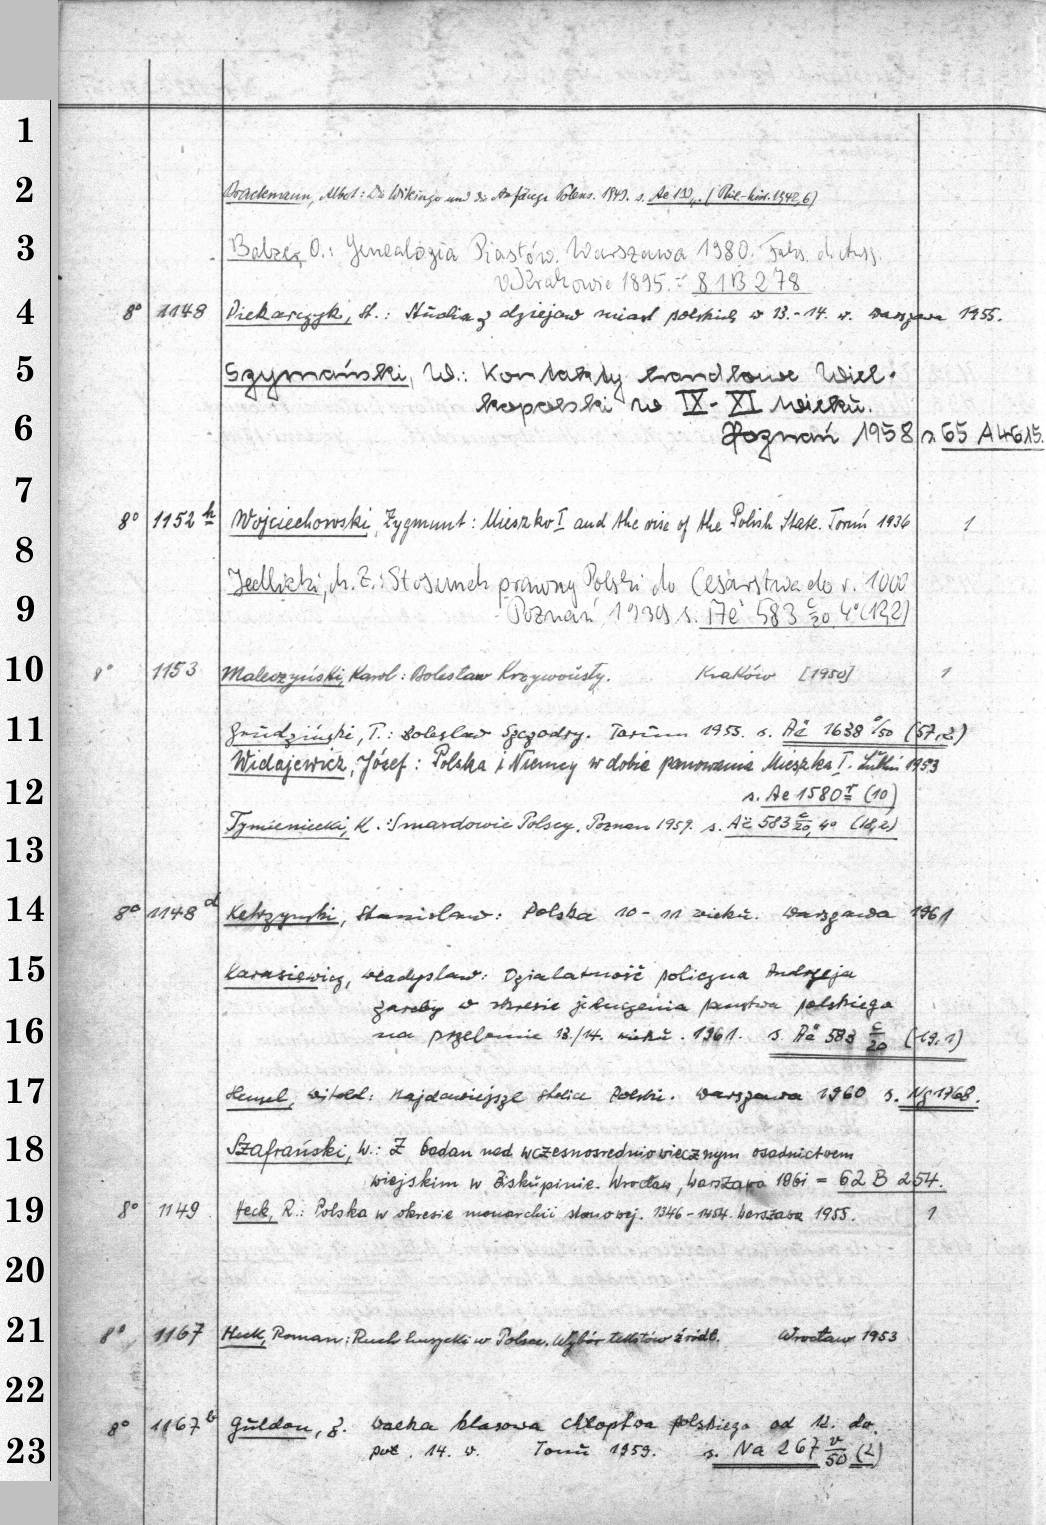 1
2 Brackmann, Albert: Die Wikinger und die Anfänge Polens. 1943. s. Ae 132,. (Phil.-hist. 1942,6)
3 Balzer, O.: Genealogia Piastów. Warszawa 1980. Faks. d. Ausg.
v. Krakowie 1895. = 81 B 278
4 8° 1148 Piekarczyk, St.: Studia z dziejow miast polskich w 13.-14. w. Warszawa 1955.
5 Szymański, W.: Kontakty handlowe Wiel-
kopolski w IX-XI wieku.
6 Poznań 1958 s. 65 A 4615.
7
8° 1152 h Wojciechowski, Zygmunt: Mieszko I and the rise of the Polish State. Toruń 1936 1
8
9 Jedlicki, M. Z.: Stosunek prawny Polski do Cesarstwa do r. 1000
Poznań 1939 s. Ae 583 c/20 4° (12,2)
10 8° 1153 Maleczyński, Karol: Bolesław Krzywousty. Kraków [1950] 1
11 Grudziński, T.: Boleslaw Szczodry. Toruń 1953. s. Aä 1638 a/50 (57,2)
Widajewicz, Józef: Polska i Niemcy w dobie panowania Mieszka I. Lublin 1953
12 s. Ae 1580 r (10)
Tymieniecki, K.: Smardowie Polscy. Poznan 1959. s. Aë 583 c/20, 4° (18,2)
13
14 8° 1148 d Ketrzynski, Stanislaw: Polska 10-11 wieku. Warszawa 1961
15 Karasiewicz, Wladyslaw: Dzialatność policzna Andrzeja
Zareby w okresie jednczenia panstwa polskiego
16 na przelomie 13./14. wieku. 1961. s. Aä 583 c/20 (19.1)
17 Hensel, Witold: Najdawniejsze stolice Polski. Warszawa 1960 s. Ng 1768.
18 Szafrański, W.: Z badan nad wczesnosredniowiecznym osadnictwem
wiejskim w Biskupinie. Wrocław, Warszawa 1961 = 62 B 254.
19 8° 1149 Heck, R.: Polska w okresie monarchii stanowej. 1346-1454. Warszawa 1955. 1
20
21 8° 1167 Heck, Roman: Ruch husycki w Polsce. Wybór tekstów źródł. Wrocław 1953
22
8° 1167 b Guldon, Z. Walka klasowa chłopstwa polskiego od 12. do
23 poł. 14. w. Toruń 1959. s. Na 267 v/50 (2)